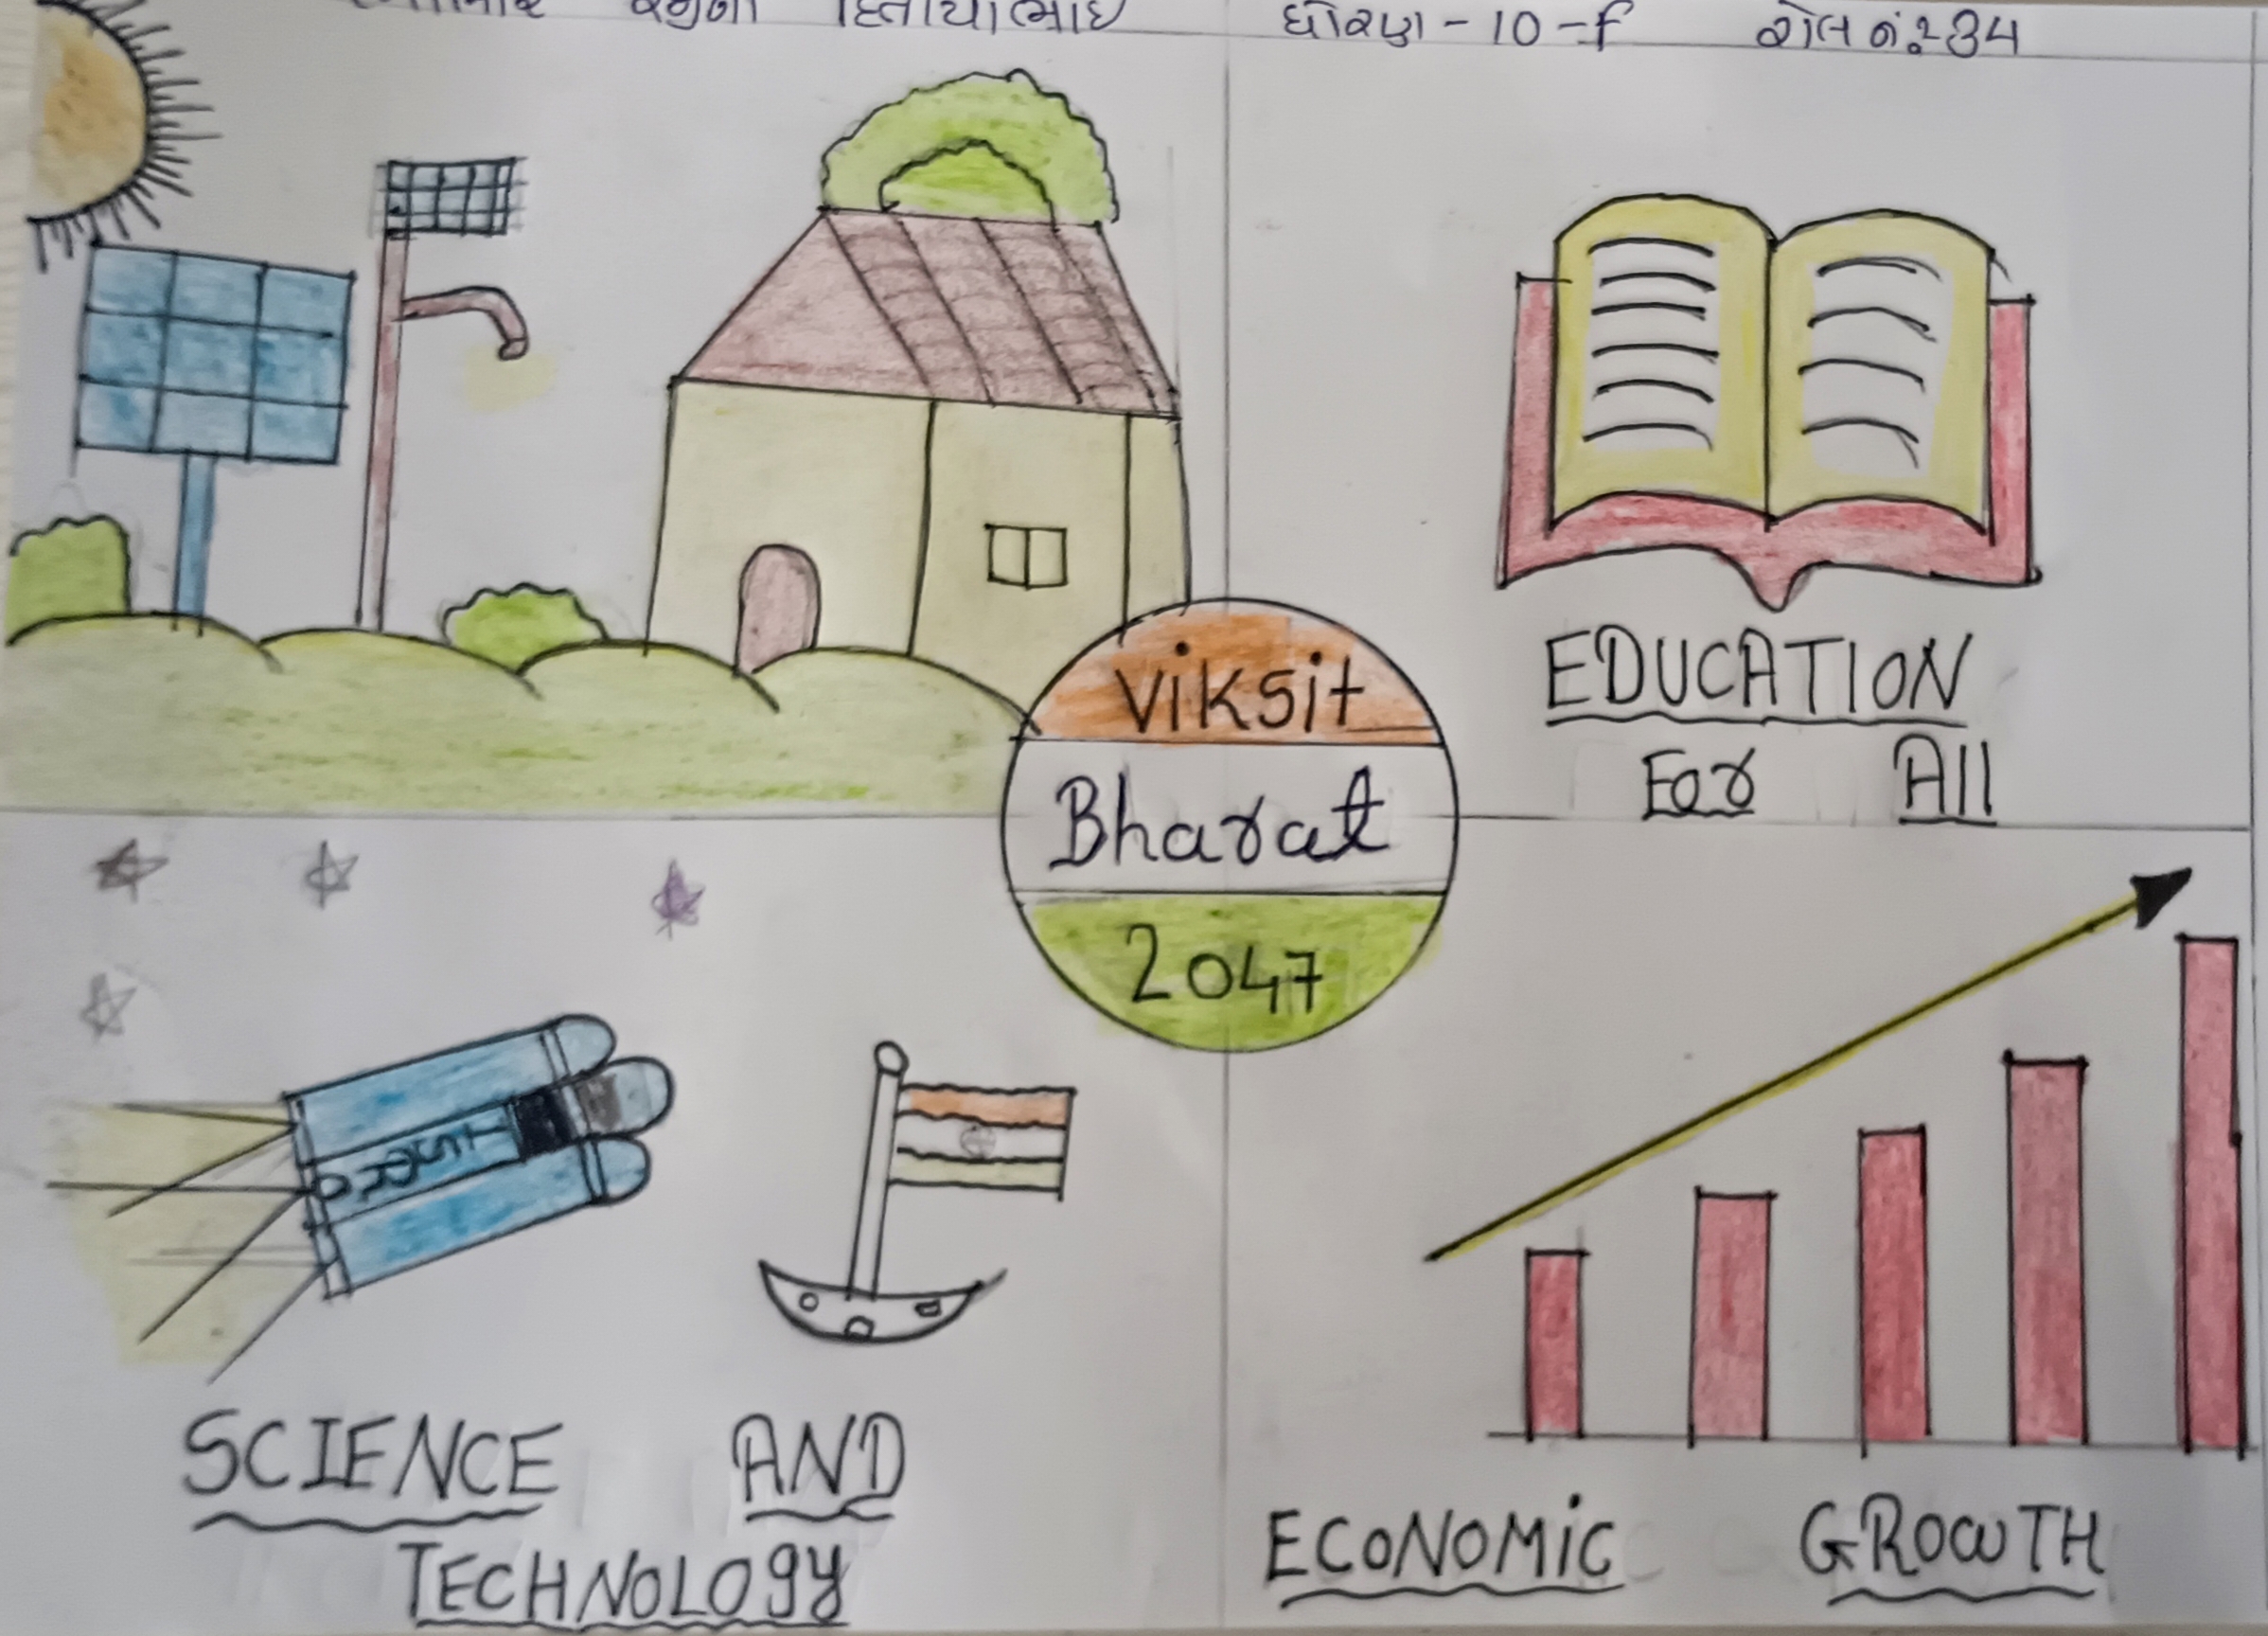 ધોરણ - 10 - F રોલ નં. 34
EDUCATION
For All
Viksit
Bharat
2047
SCIENCE AND
TECHNOLOGY
ECONOMIC GROWTH